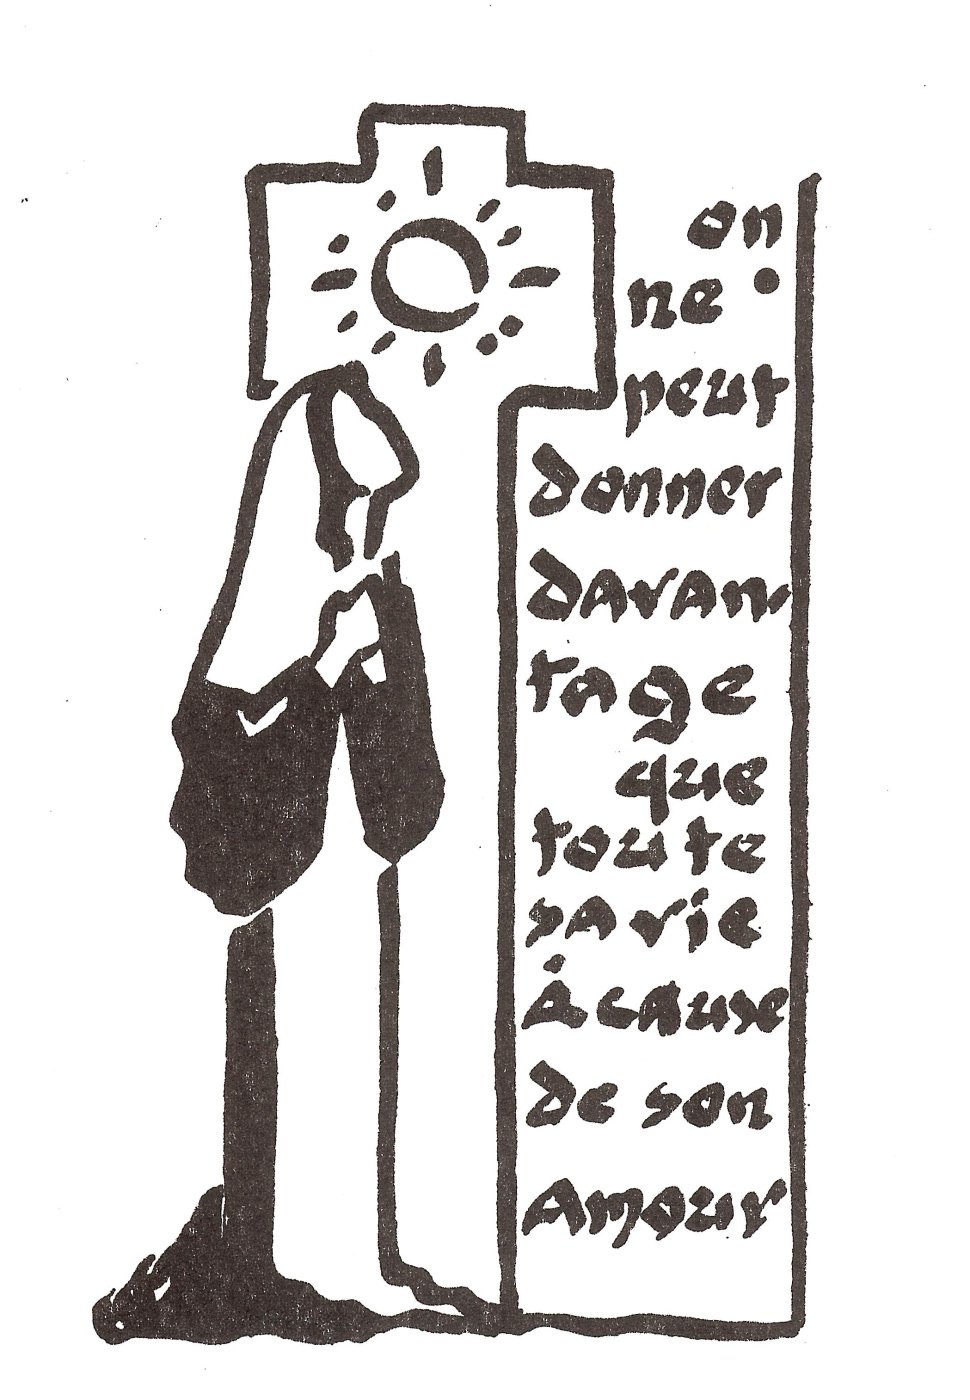 on
ne
peut
donner
davan-
tage
que
toute
sa vie
à cause
de son
Amour